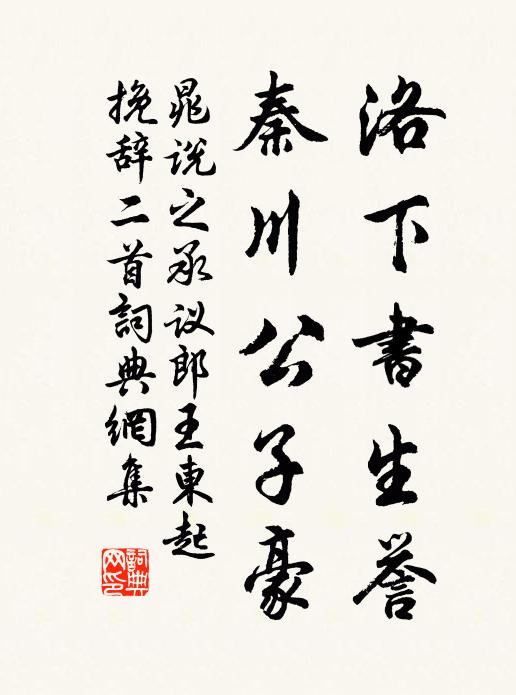 洛下書生誉
秦川公子豪
晁说之承议郎王東起
挽辞二首詞典網集
詞典网印